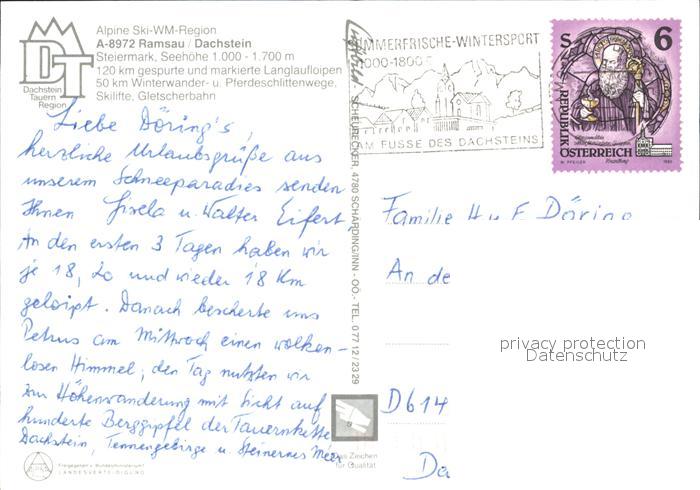 Alpine Ski-WM-Region
A-8972 Ramsau / Dachstein
Steiermark, Seehöhe 1.000 - 1.700 m
120 km gespurte und markierte Langlaufloipen
50 km Winterwander- u. Pferdeschlittenwege,
Skilifte, Gletscherbahn
DT
Dachstein
Tauern
Region
Liebe Döring's,
herzliche Urlaubsgrüße aus
unserem Schneeparadies senden
Ihnen Gisela u. Walter Eifert,
in den ersten 3 Tagen haben wir
je 18, 20 und wieder 18 Km
geloipt. Danach bescherte uns
Petrus am Mittwoch einen wolken-
losen Himmel, den Tag nutzten wir
zur Höhenwanderung mit Sicht auf
hunderte Berggipfel der Tauernkette
Dachstein, Tennengebirge u. Steinernes Meer
Freigegeben v. Bundesministerium f.
LANDESVERTEIDIGUNG
SCHEURECKER, 4780 SCHÄRDING/INN - OÖ. - TEL. 0 77 12 / 23 29
Das Zeichen
für Qualität
SOMMERFRISCHE-WINTERSPORT
1000-1800
AM FUSSE DES DACHSTEINS
S 6
REPUBLIK
ÖSTERREICH
Familie H u E Döring
An de
privacy protection
Datenschutz
D 614
Da